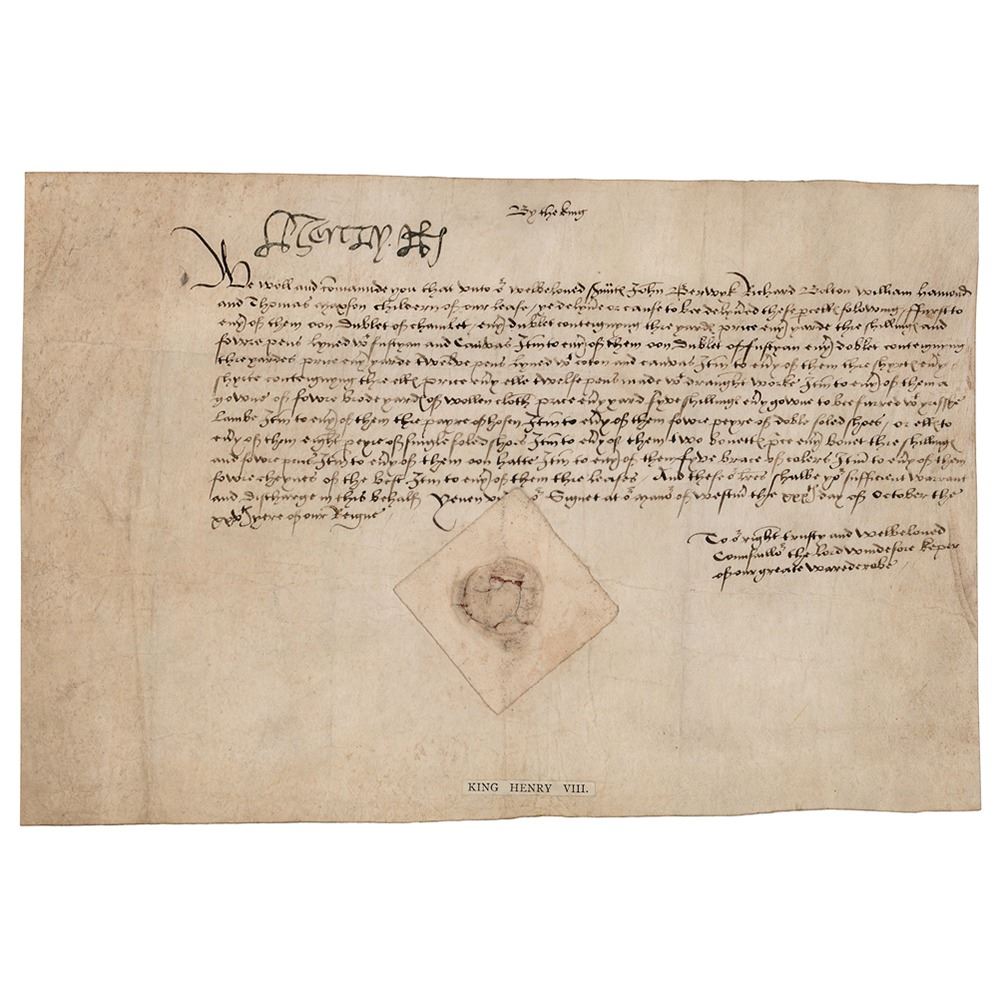 By the king
Henry R
We woll and comaunde you that unto oʳ welbeloved John Berwyk Richard Bolton William Hamond
and Thomas children of our lease / ye delyver or cause to bee delyverd these folowing / ffurst to
eny of them oon dublet of chamlet / eny dublet conteignyng thre yardes price eny yarde thre shillinges and
fowre pens lyned wᵗ fustyan and Canvas Itm to eny of them oon dublet of fustyan eny doblet conteignyng
thre yardes price eny yarde twelve pens lyned wᵗ coton and canvas Itm to eny of them thre shyrtes eny
shyrte conteignyng thre elles price eny elle twelfe pens made wᵗ draught worke Itm to eny of them a
gowne of fowre brode yardes of wollen cloth price eny yard fyve shillinges eny gowne to bee furred wᵗ
Lambe Itm to eny of them thre payre of hosen Itm to eny of them fowre peyre of doble soled shoes / or elles to
eny of them eight peyre of single soled shoes Itm to eny of them two bonettes pce eny bonet thre shillinges
and fowre pens Itm to eny of them oon hatte Itm to eny of them fyve brace of colers Itm to eny of them
fowre cheynes of the best Itm to eny of them thre leases / And these oʳ lres shalbe yoʳ sufficient warrant
and discharge in this behalf Yeven undʳ oʳ Signet at oʳ manoʳ of Westm the day of October the
yere of our Reigne
To oʳ right trusty and welbeloved
Counsaillʳ the lord windesore keper
of our greate warederobe
KING HENRY VIII.